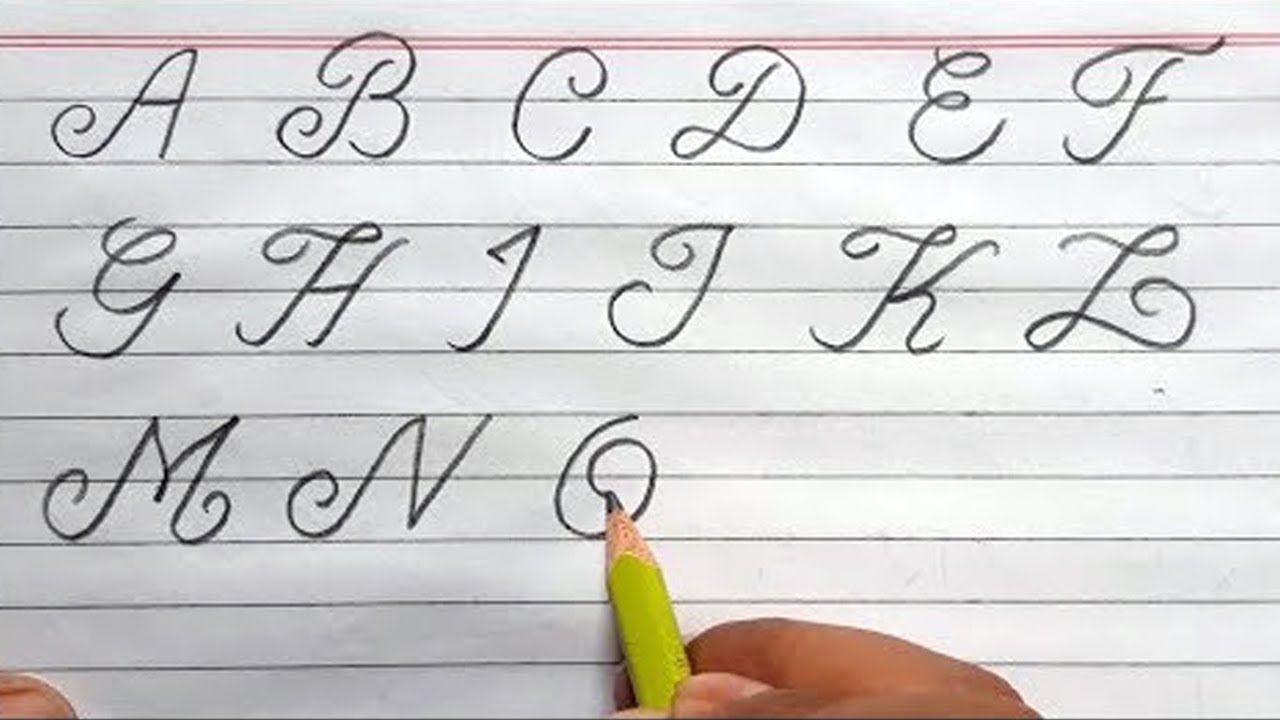 A B C D E F
G H I J K L
M N O